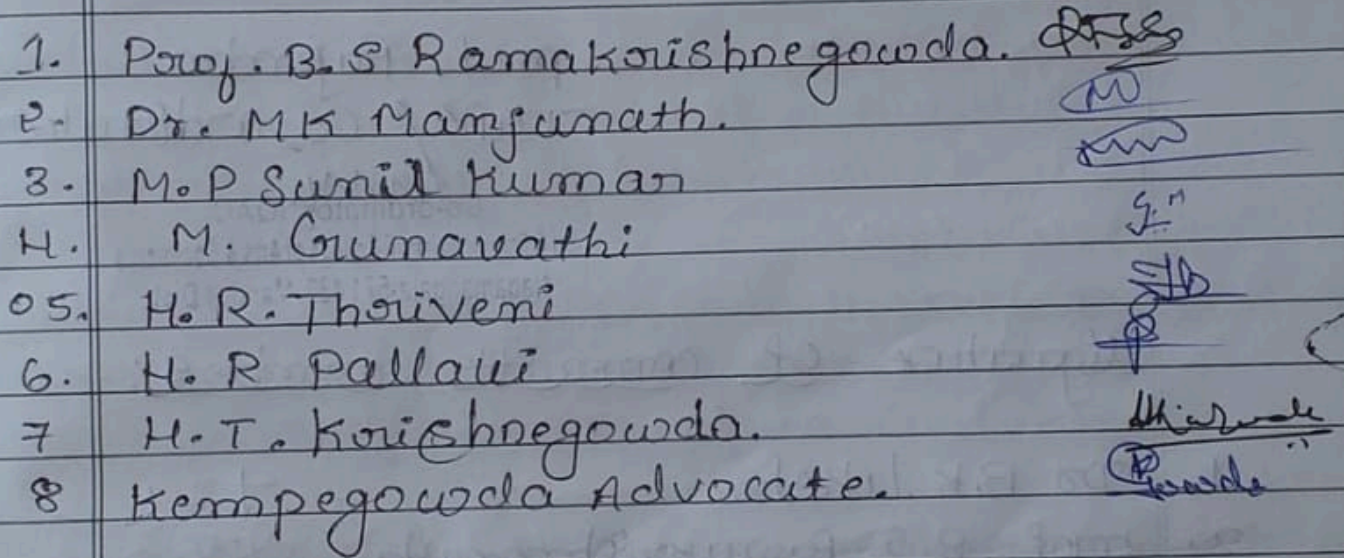 1. Prof. B.S Ramakrishnegowda.
2. Dr. MK Manjunath.
3. M.P Sunil Kumar
4. M. Gunavathi
05. H.R. Thriveni
6. H.R Pallavi
7 H.T. Krishnegowda.
8 Kempegowda Advocate.